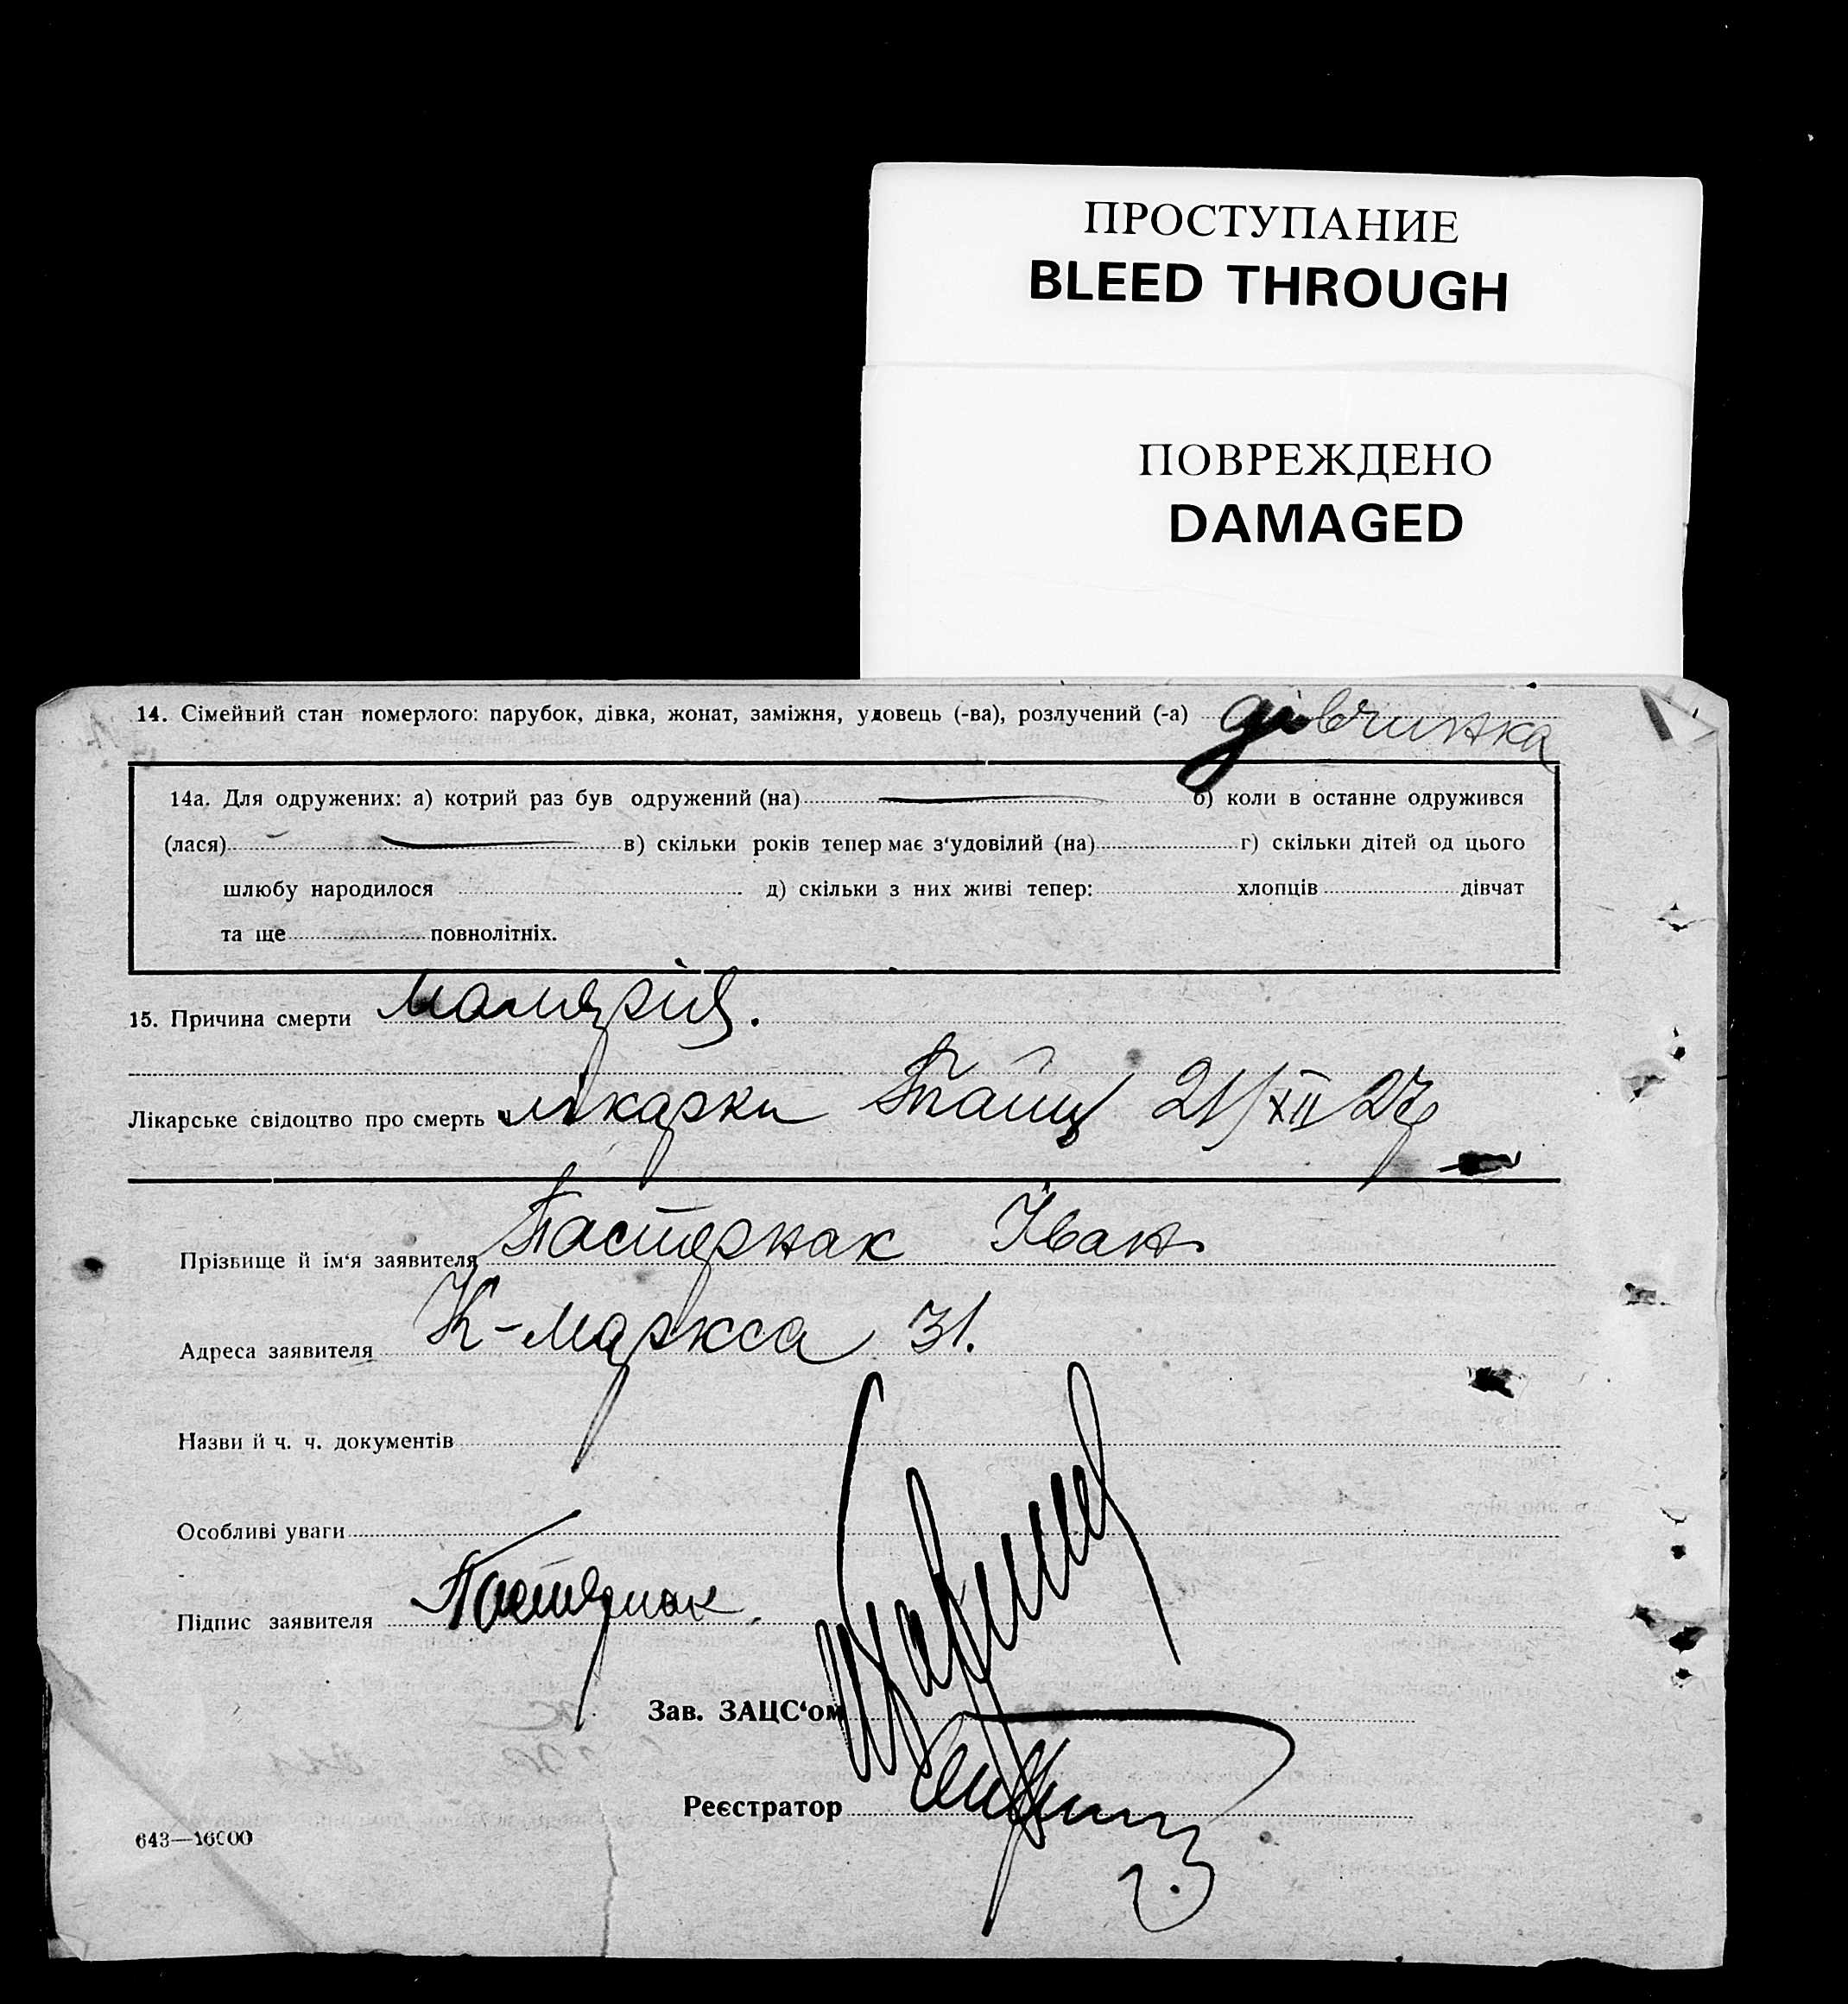 ПРОСТУПАНИЕ
BLEED THROUGH
ПОВРЕЖДЕНО
DAMAGED
14. Сімейний стан померлого: парубок, дівка, жонат, заміжня, удовець (-ва), розлучений (-а) дівчинка
14а. Для одружених: а) котрий раз був одружений (на) б) коли в останнє одружився
(лася) в) скільки років тепер має з'удовілий (на) г) скільки дітей од цього
шлюбу народилося д) скільки з них живі тепер: хлопців дівчат
та ще повнолітніх.
15. Причина смерти малярія.
Лікарське свідоцтво про смерть лікарки 21/XII 27
Прізвище й ім'я заявителя Пастернак Іван
Адреса заявителя К-Маркса 31.
Назви й ч. ч. документів
Особливі уваги
Підпис заявителя Пастернак
Зав. ЗАЦС'ом
Реєстратор
643—16000